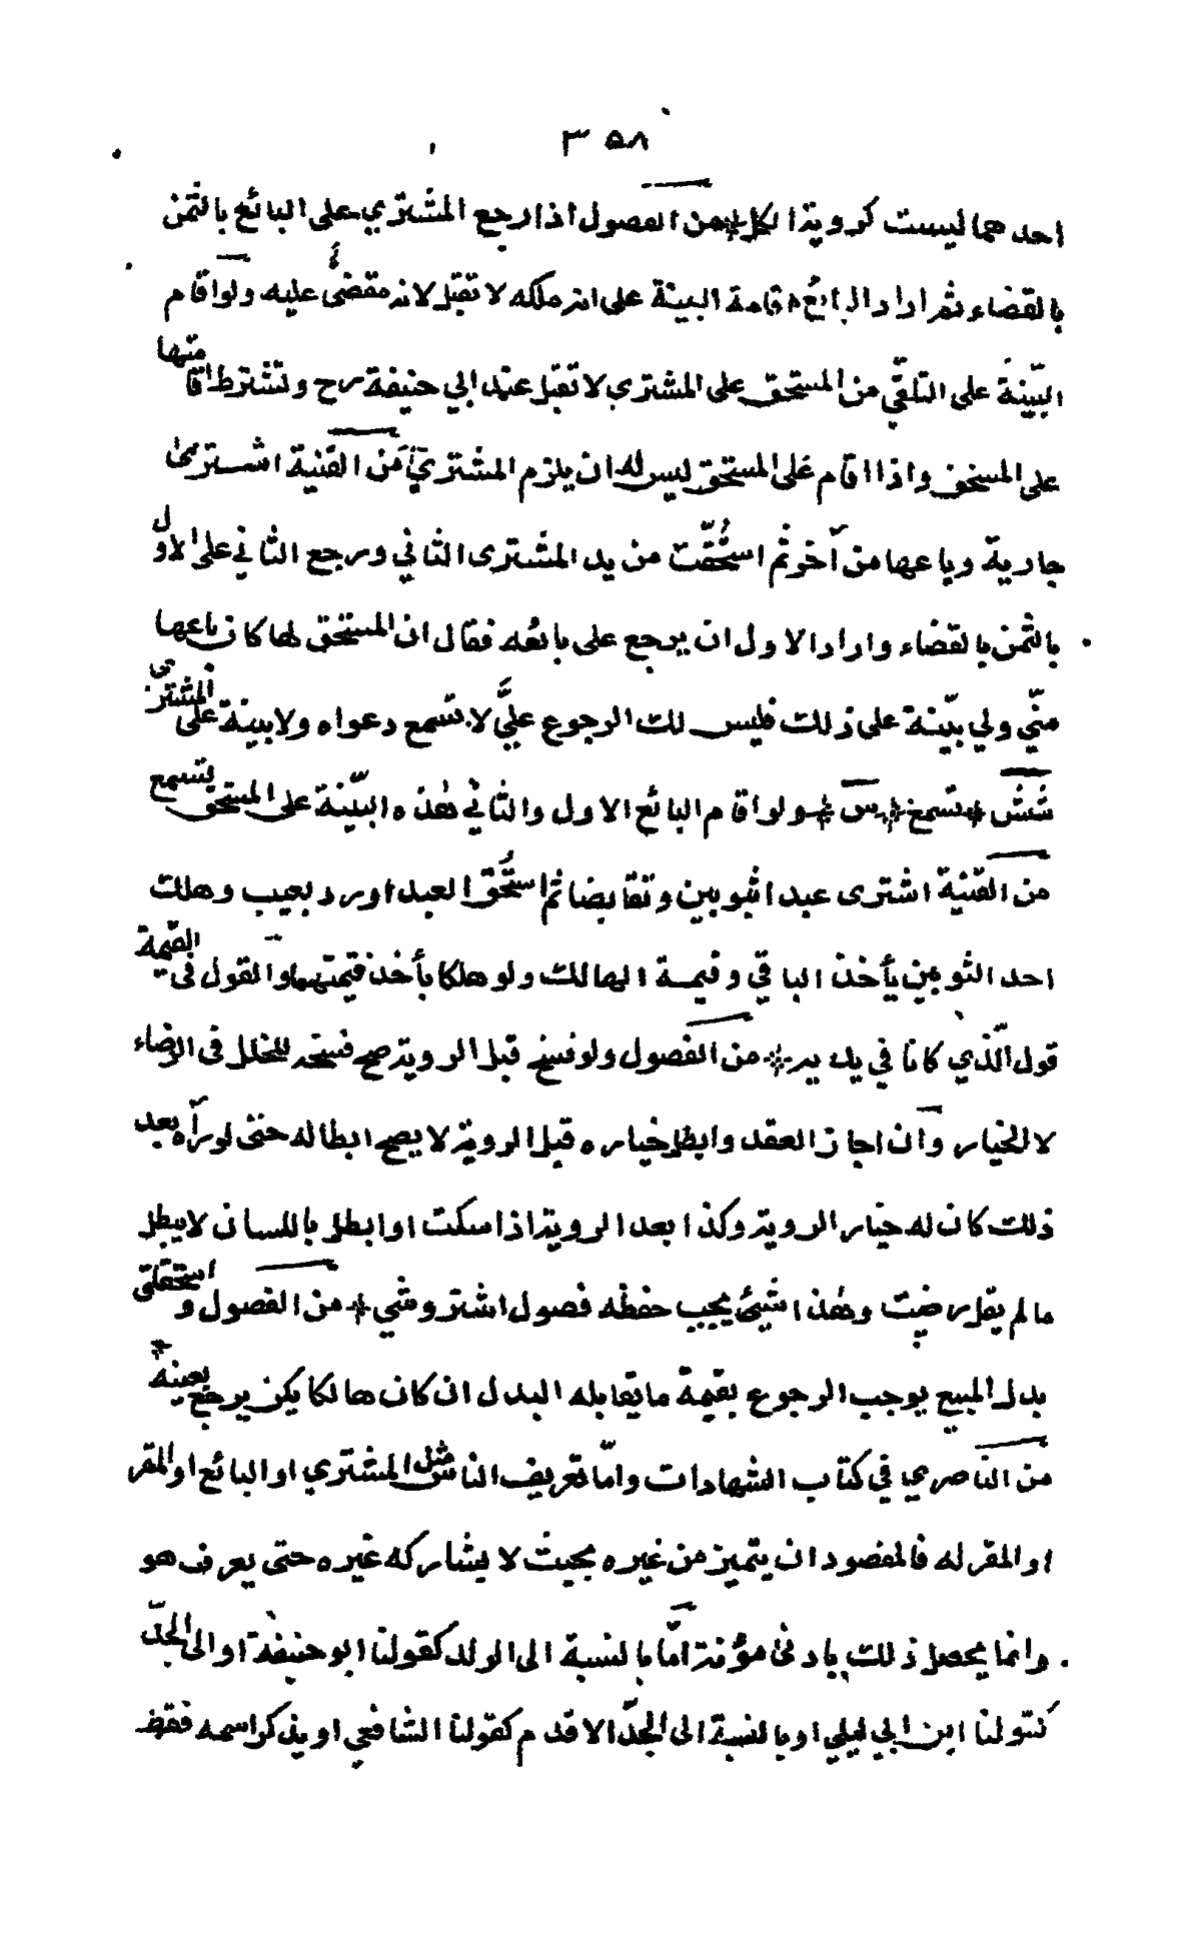 ٣٥٨
احدهما ليست كروية الكل * من الفصول اذا رجع المشتري على البائع بالثمن
بالقضاء ثم اراد البائع اقامة البينة على انه ملكه لا تقبل لانه مقضىٌ عليه ولو اقام
البيّنة على التلقّي من المستحق على المشتري لا تقبل عند ابي حنيفة رح وتشترط اقامتها
على المستحق واذا اقام على المستحق ليس له ان يلزم المشتري من القنية اشترى
جارية وباعها من آخر ثم استُحقّت من يد المشترى الثاني ورجع الثاني على الاول
بالثمن بالقضاء واراد الاول ان يرجع على بائعه فقال ان المستحق لها كان باعها
منّي ولي بيّنة على ذلك فليس لك الرجوع عليَّ لا تسمع دعواه ولا بينة على المشتري
شش * تسمع * س * ولو اقام البائع الاول والثاني هذه البيّنة على المستحق تسمع
من القنية اشترى عبدا بثوبين وتقابضا ثم استُحق العبد او رد بعيب وهلك
احد الثوبين يأخذ الباقي وقيمة الهالك ولو هلكا يأخذ قيمتهما والقول فى القيمة
قول الّذي كانا في يديه * من الفصول ولو فسخ قبل الروية صح فسخه للخلل فى الرضاء
لا للخيار وان اجاز العقد وابطل خياره قبل الروية لا يصح ابطاله حتى لو رآه بعد
ذلك كان له خيار الروية وكذا بعد الروية اذا سكت او ابطل باللسان لا يبطل
ما لم يقل رضيت وهذا شيئ يجب حفظه فصول اشتروشي * من الفصول و استحقاق
بدل المبيع يوجب الرجوع بقيمة ما يقابله البدل ان كان هالكا يكن يرجع بعينه *
من الناصري في كتاب الشهادات وامّا تعريف الناس مثل المشتري او البائع او المقر
او المقر له فالمقصود ان يتميز من غيره بحيث لا يشاركه غيره حتى يعرف هو
وانما يحصل ذلك بادنى مؤنة امّا بالنسبة الى الولد كقولنا ابو حنيفة او الى الجدّ
كقولنا ابن ابي ليلي او بالنسبة الى الجدّ الاقدم كقولنا الشافعي او يذكر اسمه فقط